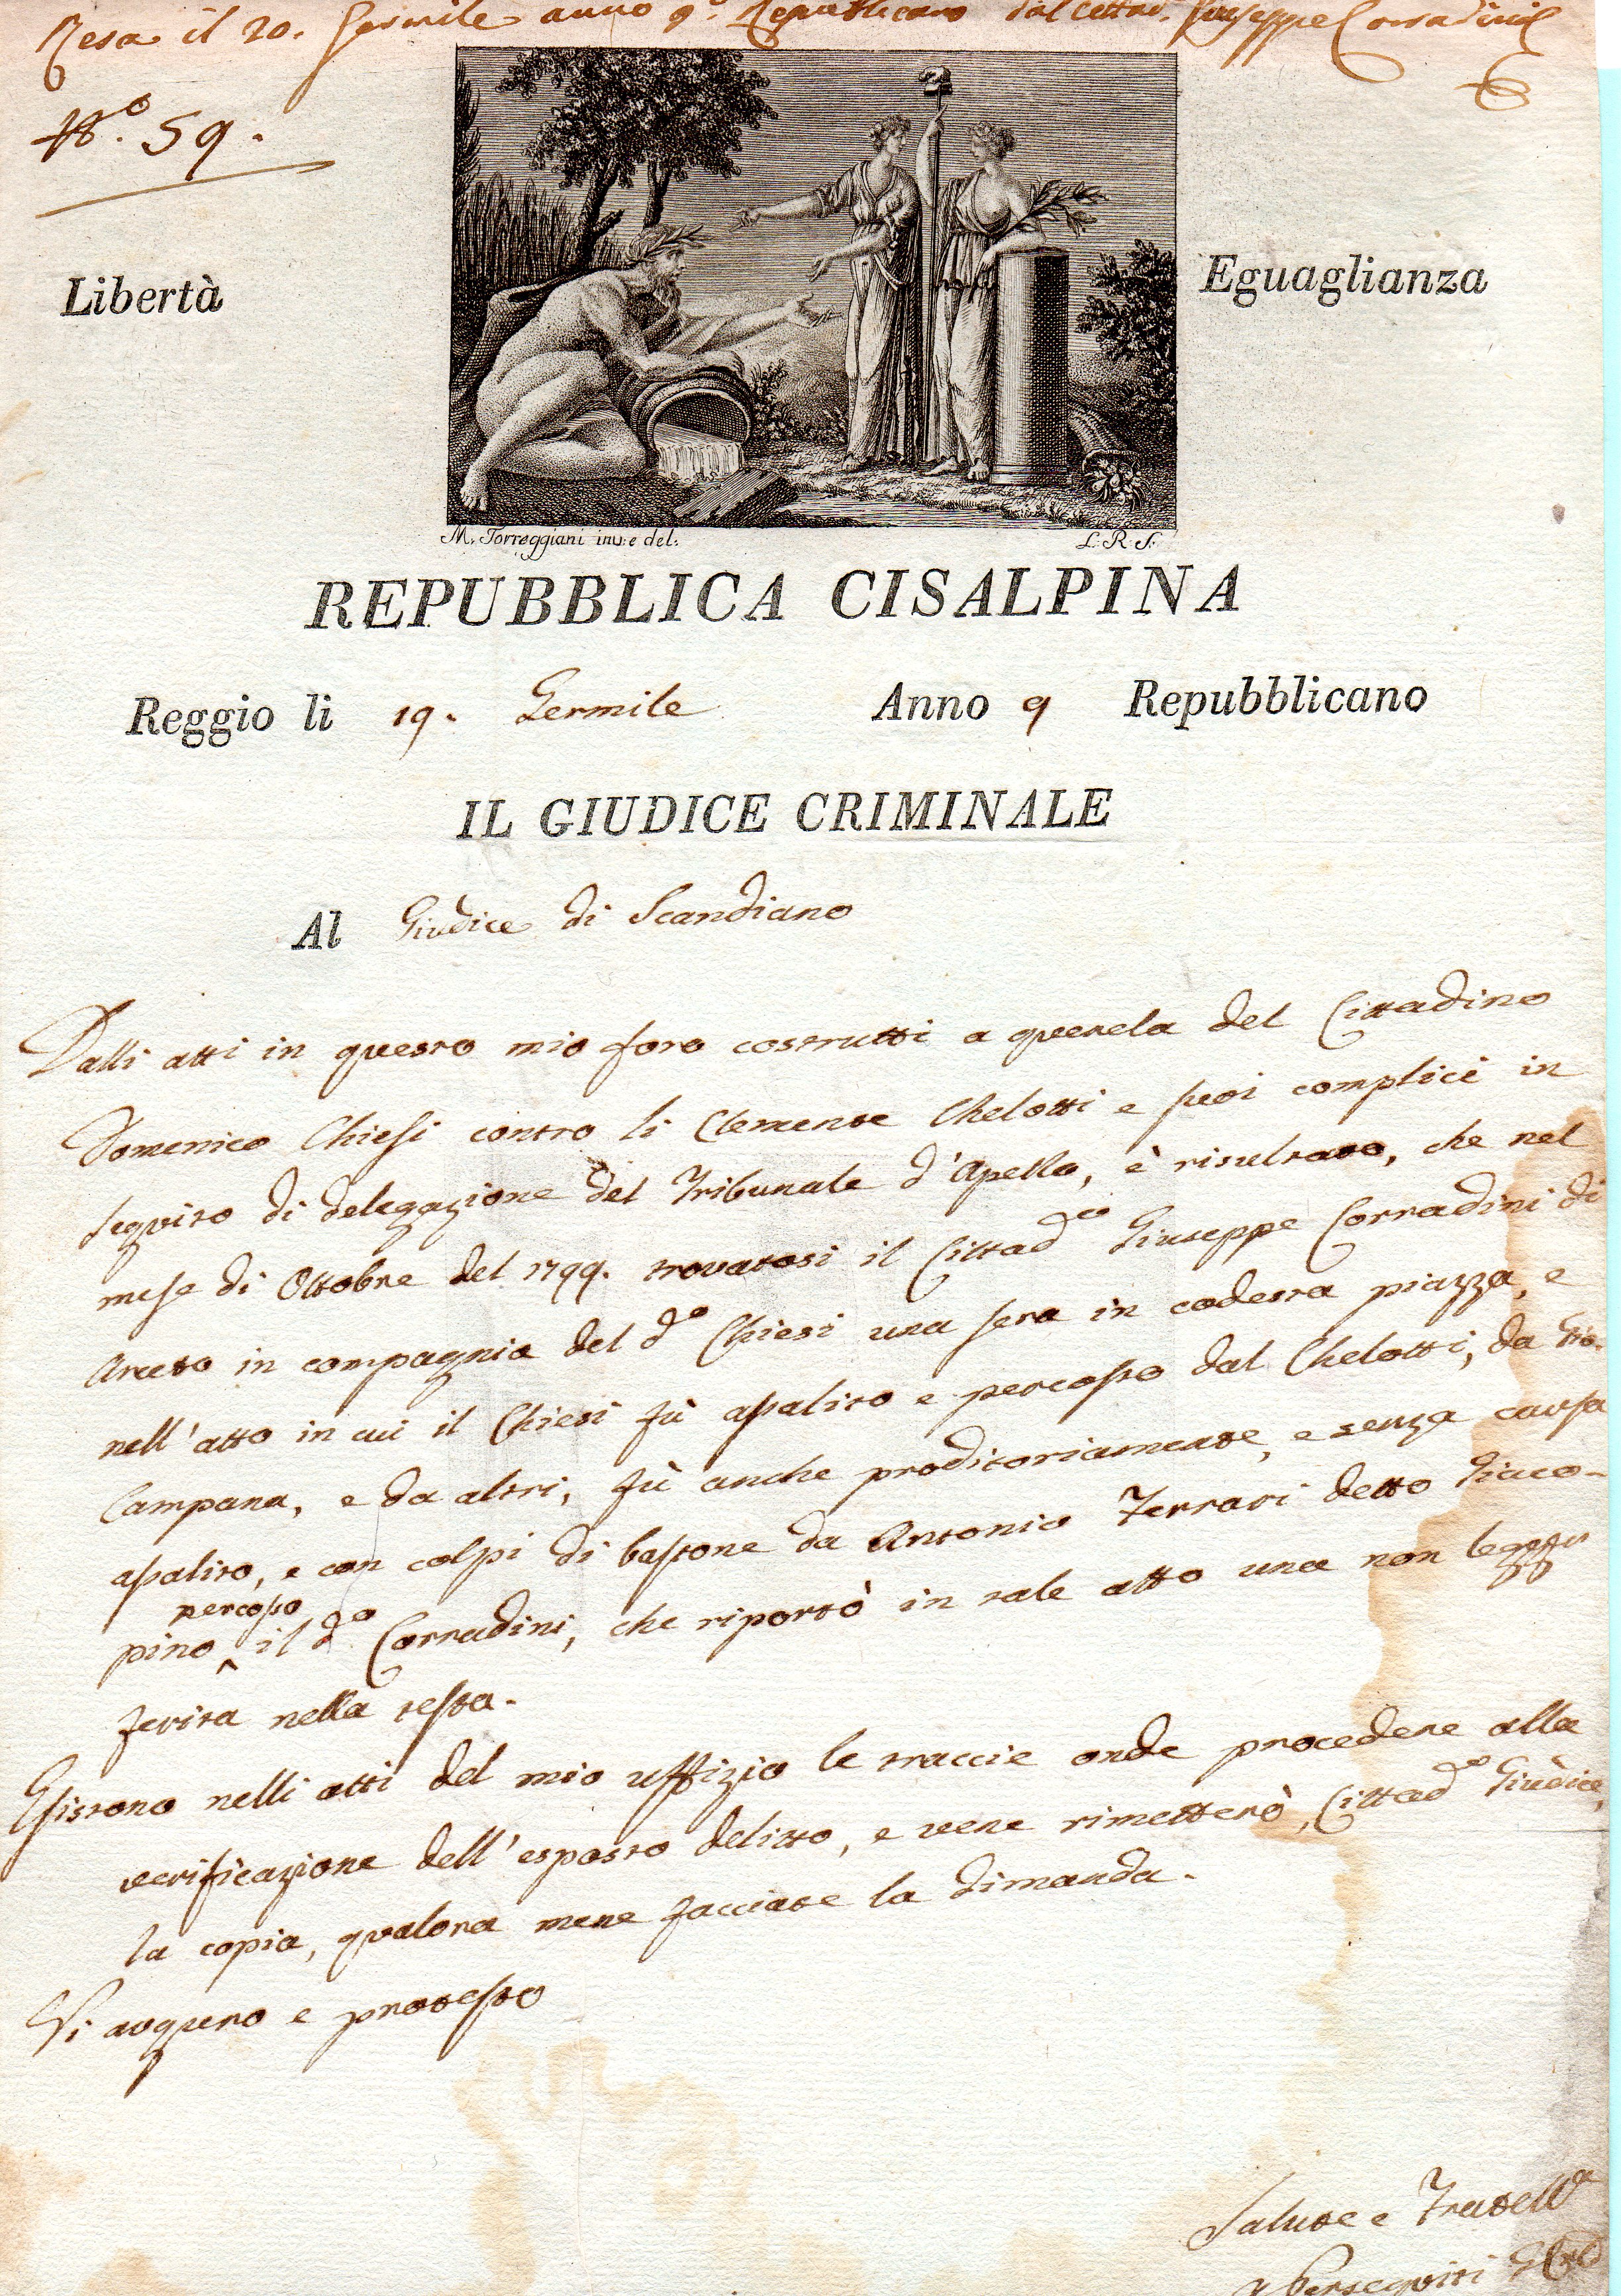 Resa il 20. Germile anno 9.° Repubblicano dal Cittad.° Giuseppe Corradini
N.° 59.
Libertà
Eguaglianza
M. Torreggiani inv: e del:
L. R. S.
REPUBBLICA CISALPINA
Reggio li 19. Germile Anno 9 Repubblicano
IL GIUDICE CRIMINALE
Al Giudice di Scandiano
Dalli atti in questo mio foro costrutti a querela del Cittadino
Domenico Chiesi contro li Clemente Chelotti e suoi complici in
seguito di delegazione del Tribunale d'Apello, è risultato, che nel
mese di Ottobre del 1799. trovatosi il Cittad.° Giuseppe Corradini di
Arceto in compagnia del d.° Chiesi una sera in codesta piazza, e
nell'atto in cui il Chiesi fù assalito e percosso dal Chelotti, da Gio.
Campana, e da altri, fù anche proditoriamente, e senza causa
assalito, e con colpi di bastone da Antonio Ferrari detto Giaco-
percosso
pino ^ il d.° Corradini, che riportò in tale atto una non
ferita nella testa.
Esistono nelli atti del mio uffizio le traccie onde procedere alla
verificazione dell'esposto delitto, e vene rimetterò, Cittad.° Giudice,
la copia, qualora mene facciate la dimanda.
Vi auguro e protesto
Salute e Fratell.a